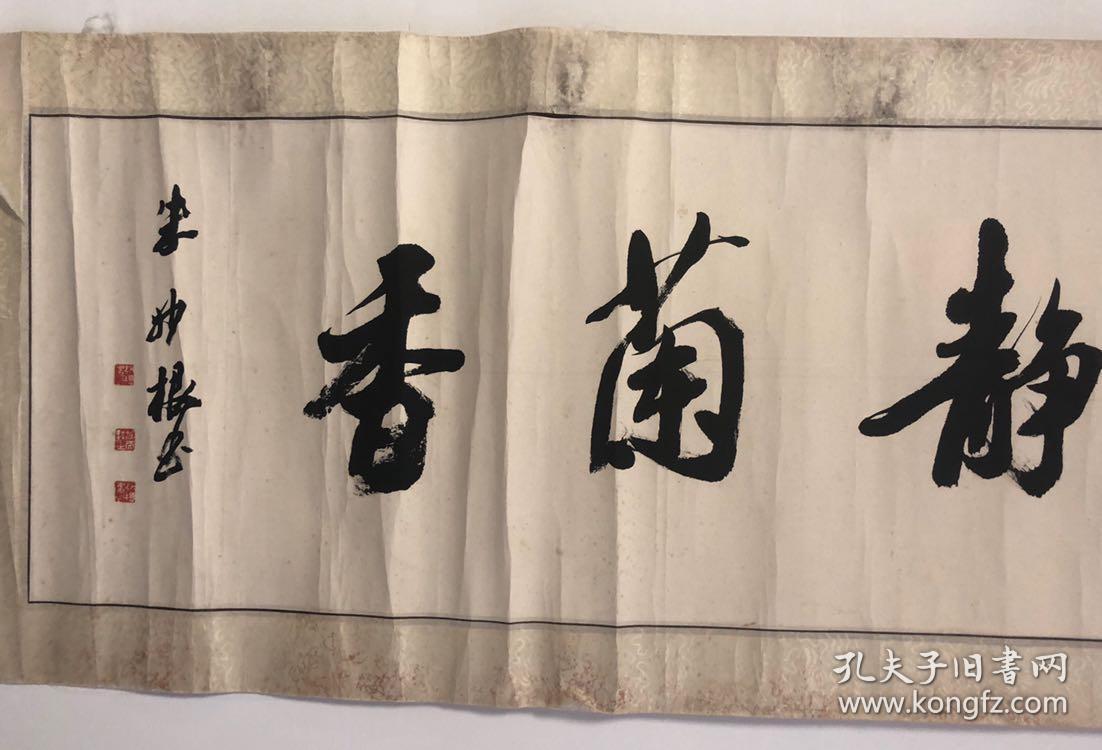 静蘭香
朱妙根书
孔夫子旧書网
www.kongfz.com